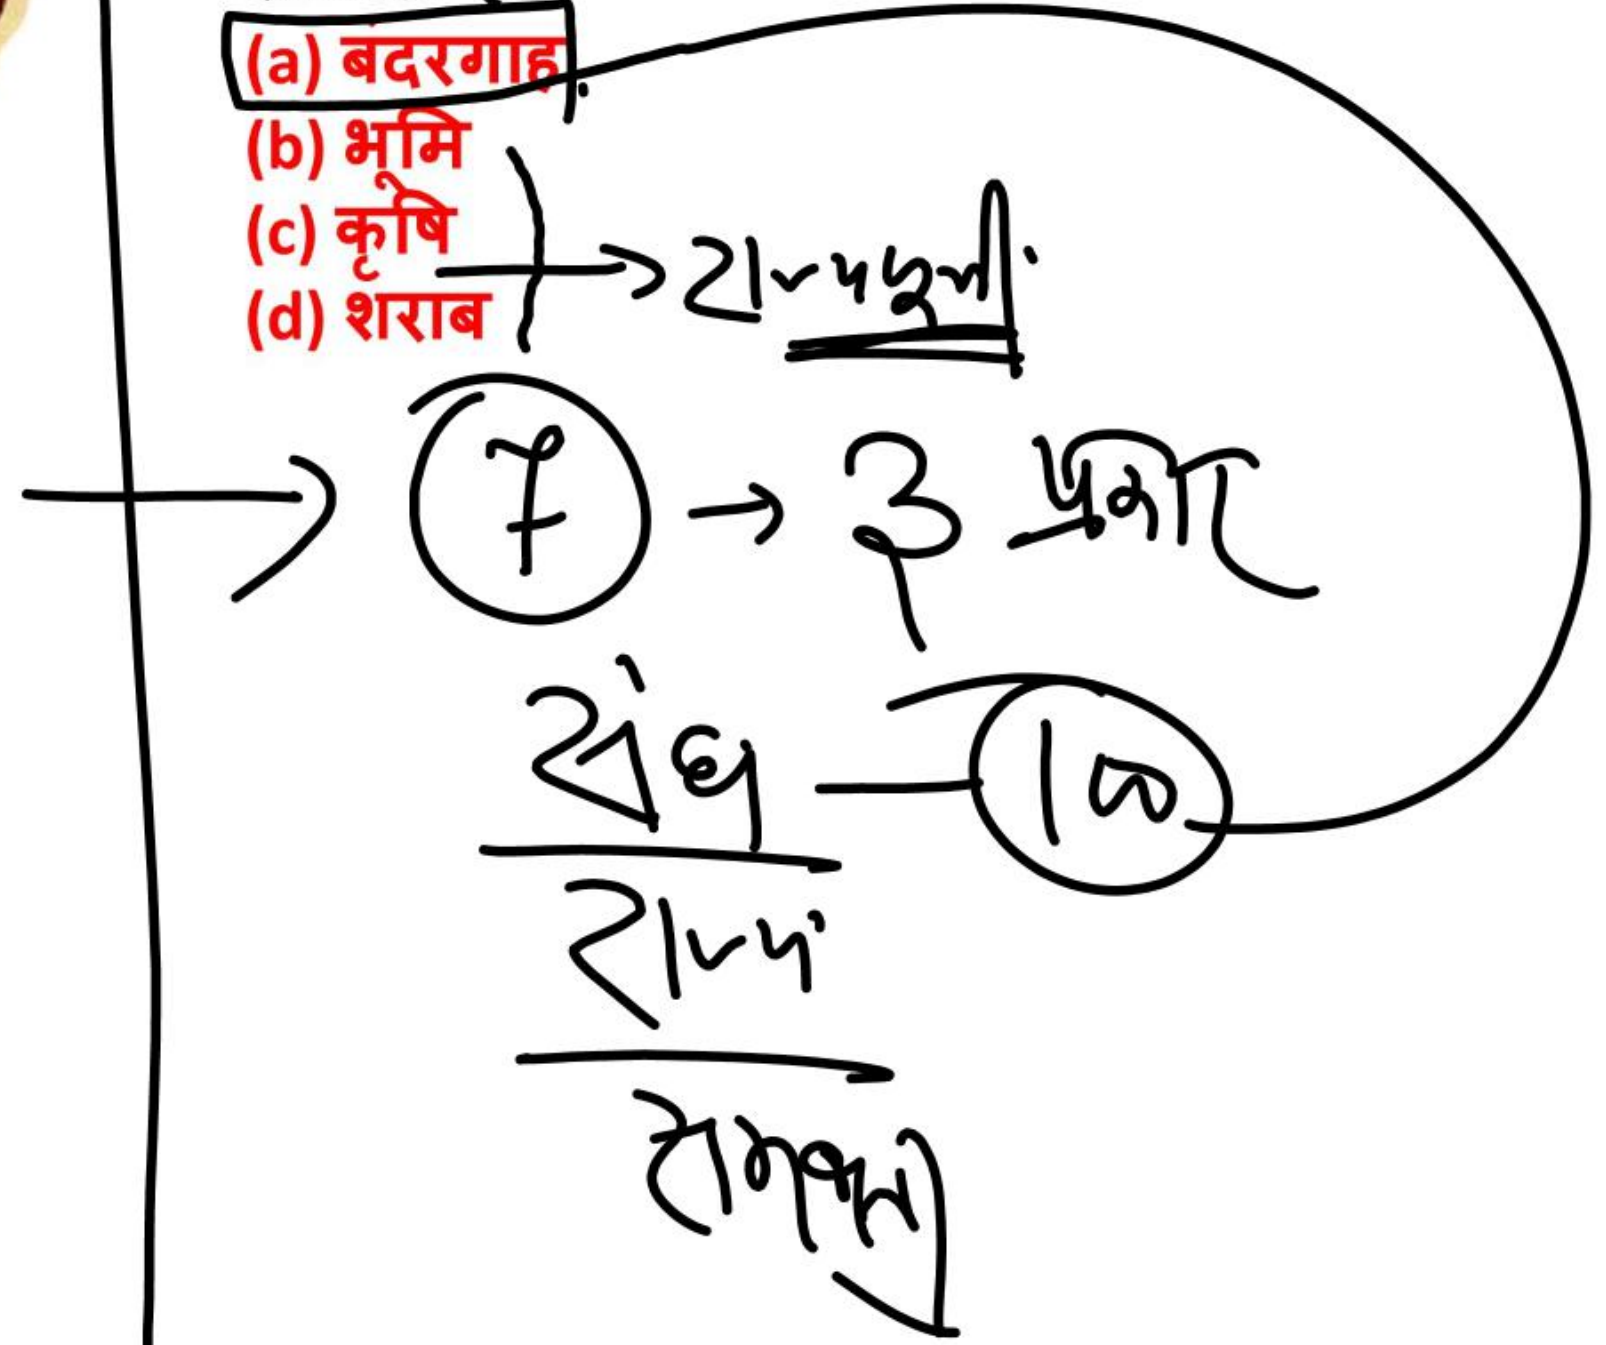 (a) बंदरगाह
(b) भूमि
(c) कृषि
(d) शराब
राज्यसूची
7 → 3 प्रकार
संघ — 100
राज्य
समवर्ती